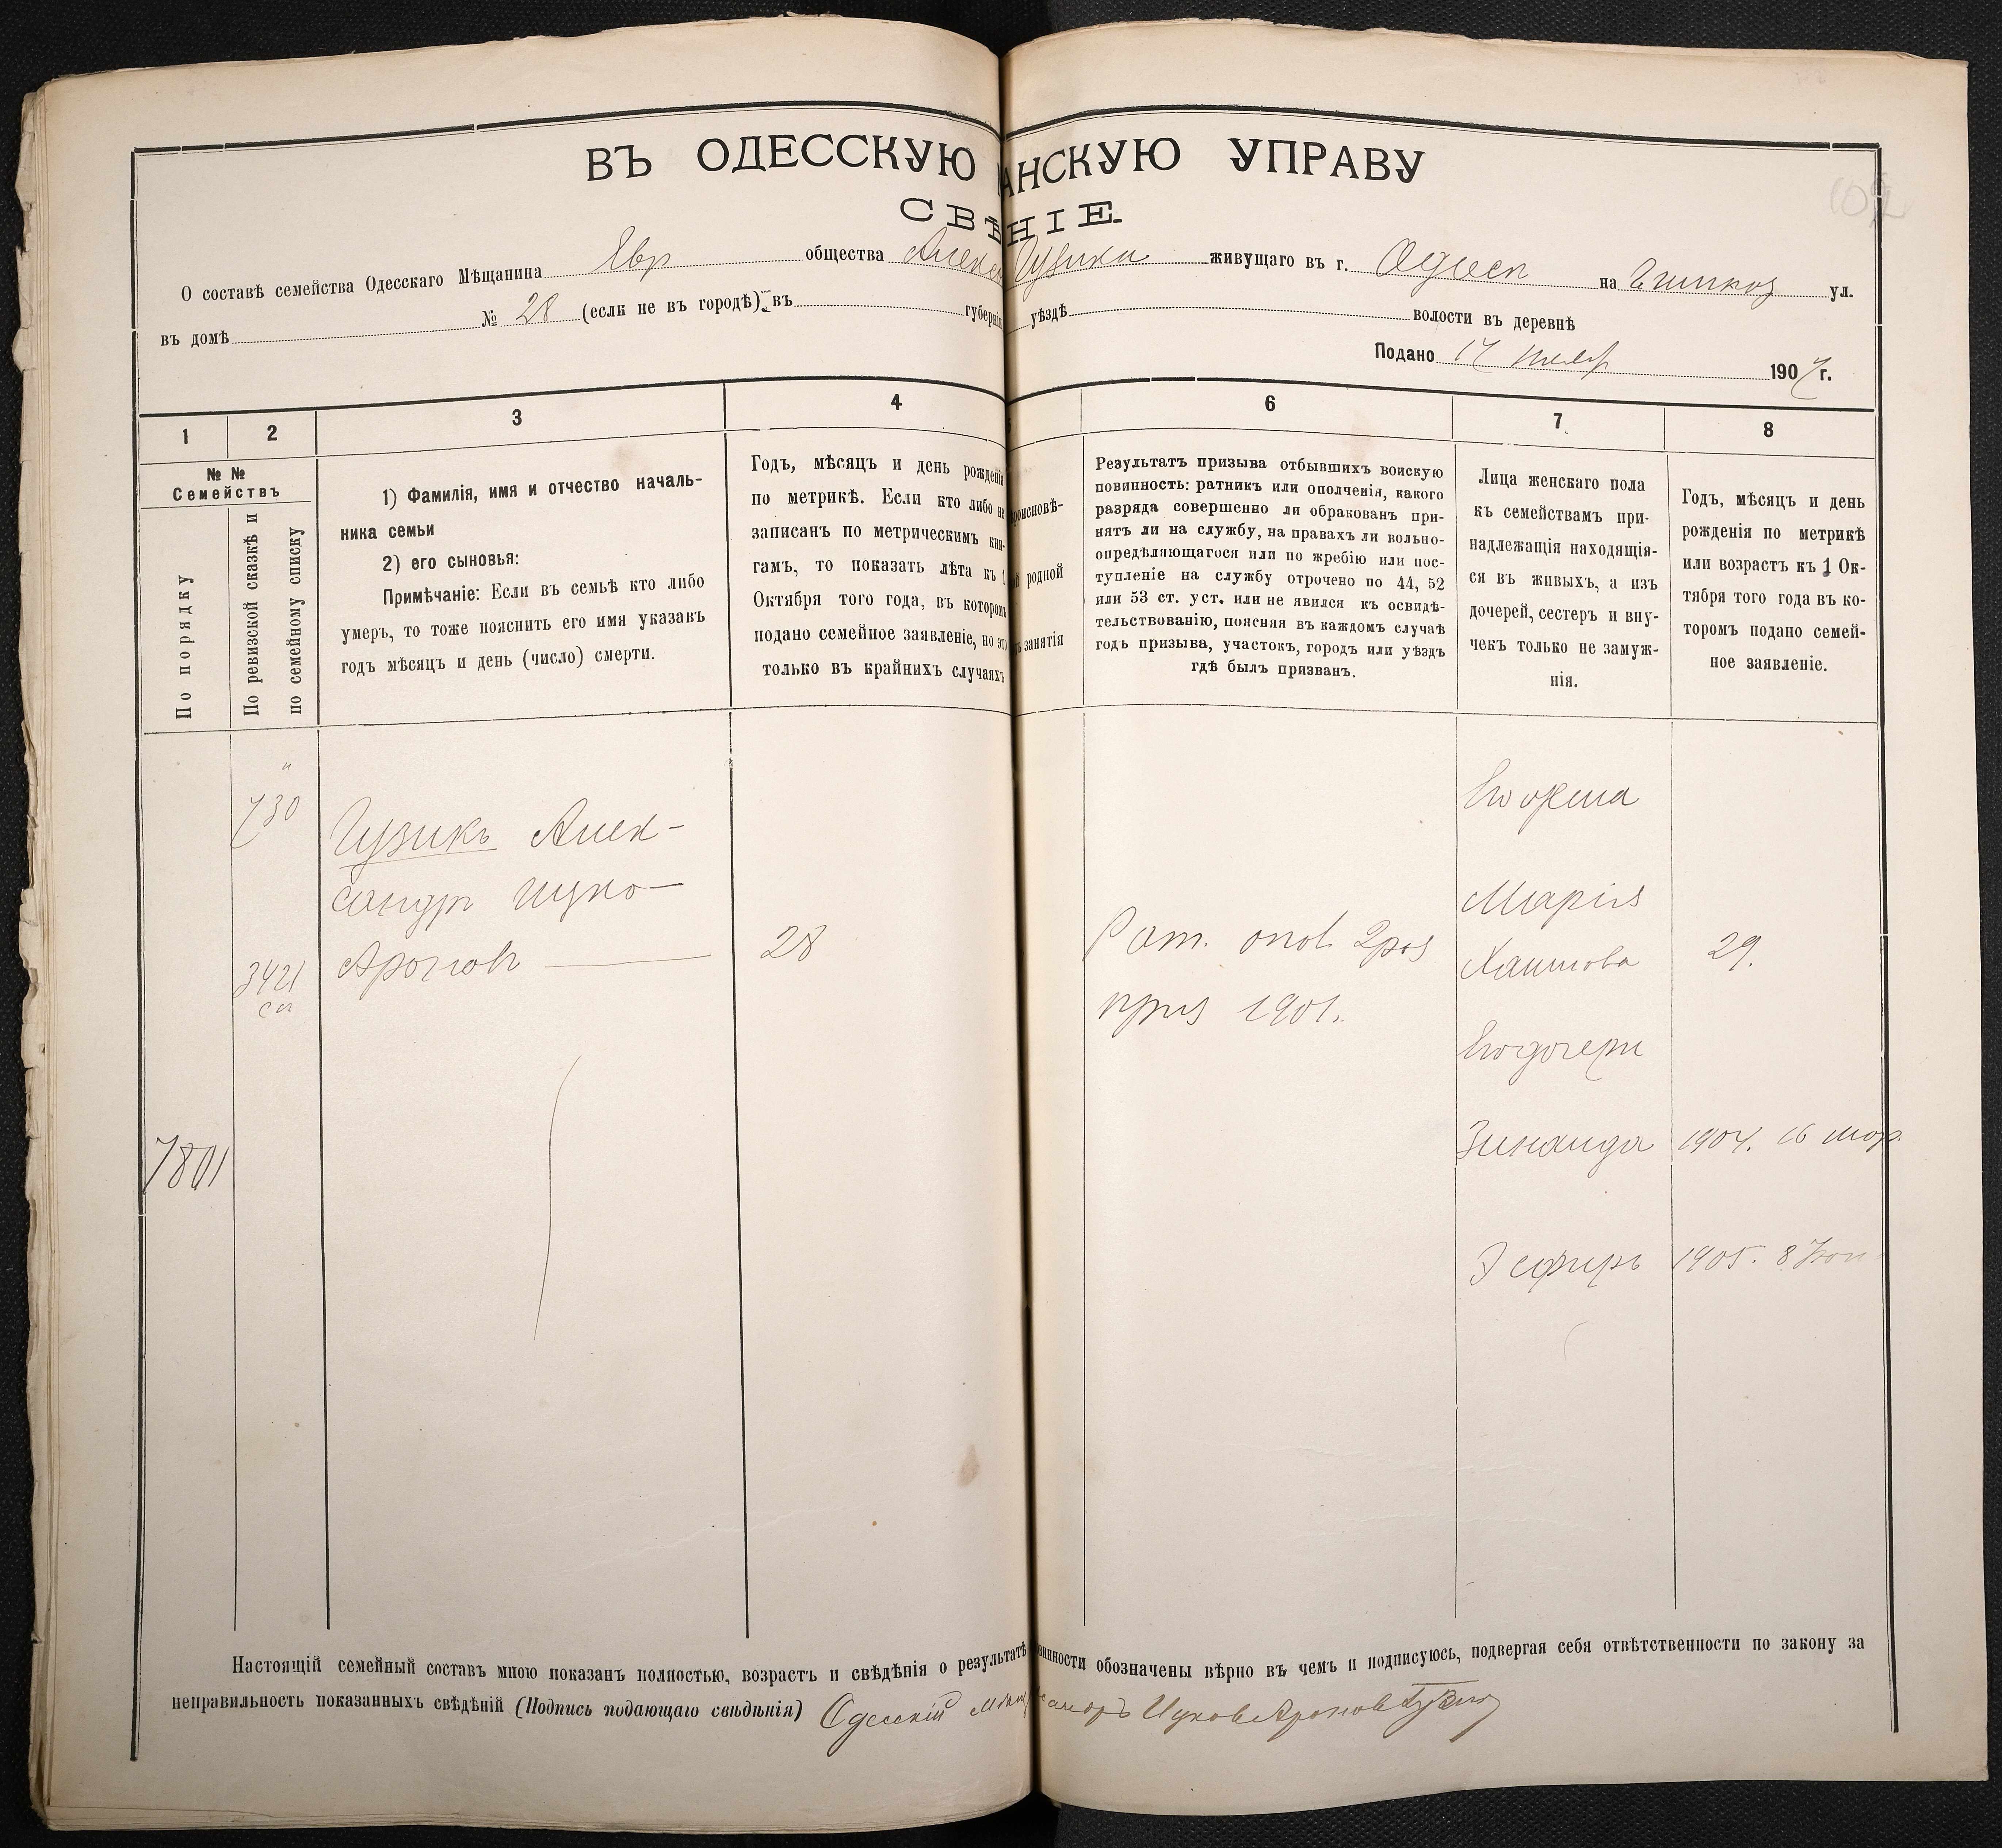 ВЪ ОДЕССКУЮ АНСКУЮ УПРАВУ
СВѢНІЕ.
О составѣ семейства Одесскаго Мѣщанина Евр общества Алекса Гузика живущаго въ г. Одесск на ул.
въ домѣ № 28 (если не въ городѣ) въ губерніи уѣздѣ волости въ деревнѣ
Подано 1907 г.
1 2 3 4 6 7 8
№ № Семействъ
По порядку
По ревизской сказкѣ и
по семейному списку
1) Фамилія, имя и отчество началь-
ника семьи
2) его сыновья:
Примѣчаніе: Если въ семьѣ кто либо
умеръ, то тоже пояснить его имя указавъ
годъ мѣсяцъ и день (число) смерти.
Годъ, мѣсяцъ и день рожденія
по метрикѣ. Если кто либо не
записанъ по метрическимъ кни-
гамъ, то показать лѣта къ 1
Октября того года, въ которомъ
подано семейное заявленіе, но это
только въ крайнихъ случаяхъ
роисповѣ-
родной
занятія
Результатъ призыва отбывшихъ воискую
повинность: ратникъ или ополченія, какого
разряда совершенно ли обракованъ при-
нятъ ли на службу, на правахъ ли вольно-
опредѣляющагося или по жребію или пос-
тупленіе на службу отрочено по 44, 52
или 53 ст. уст. или не явился къ освидѣ-
тельствованію, поясняя въ каждомъ случаѣ
годъ призыва, участокъ, городъ или уѣздъ
гдѣ былъ призванъ.
Лица женскаго пола
къ семействамъ при-
надлежащія находящія-
ся въ живыхъ, а изъ
дочерей, сестеръ и вну-
чекъ только не замуж-
нія.
Годъ, мѣсяцъ и день
рожденія по метрикѣ
или возрастъ къ 1 Ок-
тября того года въ ко-
торомъ подано семей-
ное заявленіе.
730
Гузикъ Алек-
сандръ Ицко-
Ароновъ
3421
сп
28
Рат. опол. 2 раз
приз 1901.
Его жена
Марія
Хаимова 29.
Его дочери
Зинаида 1904. 16 мар.
Эсфирь 1905. 8
7801
Настоящій семейный составъ мною показанъ полностью, возрастъ и свѣдѣнія о результатѣ винности обозначены вѣрно въ чемъ и подписуюсь, подвергая себя отвѣтственности по закону за
неправильность показанныхъ свѣдѣній (Подпись подающаго свѣдѣнія) Одесскій Мѣщ сандръ Ицковъ Ароновъ Гузикъ